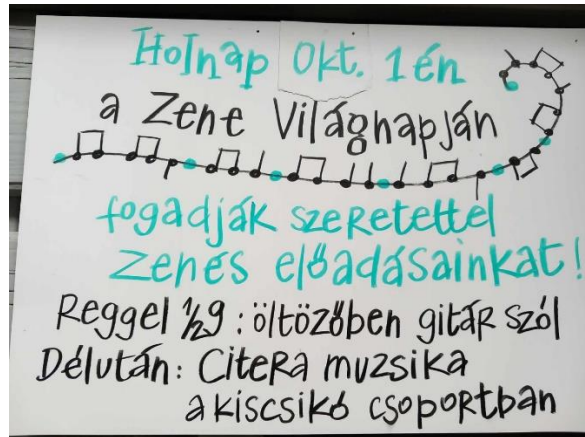 Holnap Okt. 1én
a Zene Világnapján
fogadják szeretettel
Zenés előadásainkat!
Reggel 1/29 : öltözőben gitár szól
Délután: Citera muzsika
a kiscsikó csoportban